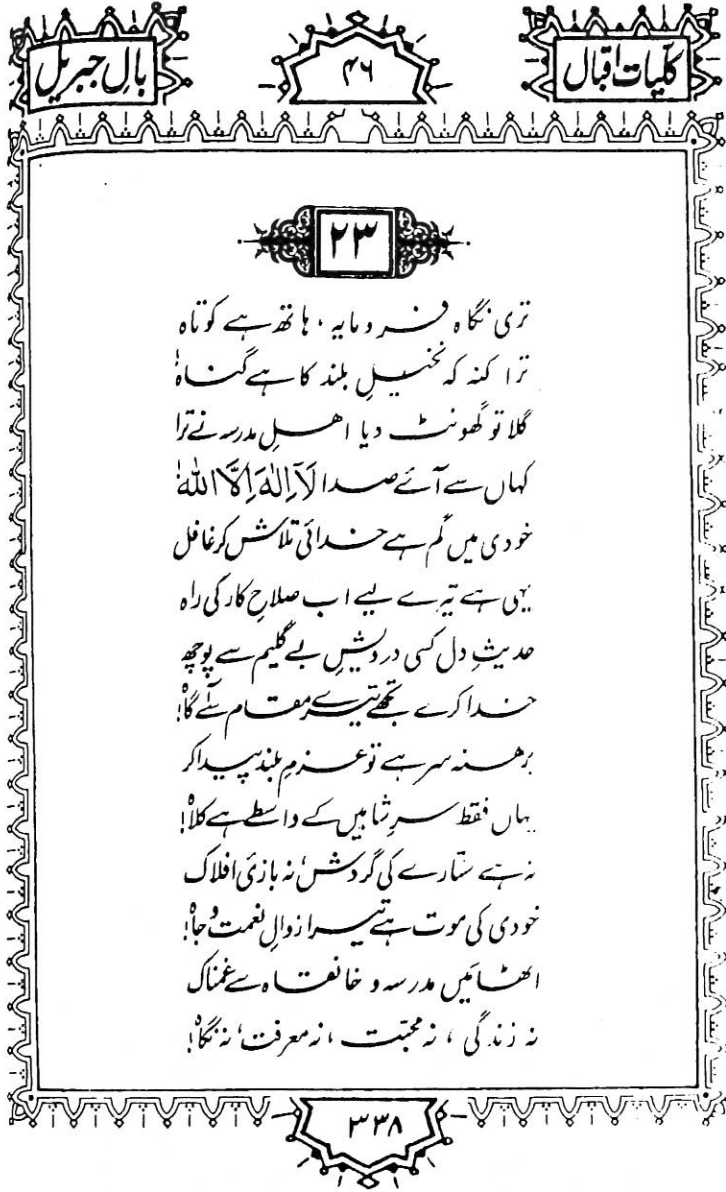 کلّیاتِ اقبال
۴۶
بالِ جبریل
۲۳
تری نگاہ فرومایہ، ہاتھ ہے کوتاہ
ترا گنہ کہ نخیلِ بلند کا ہے گناہ؟
گلا تو گھونٹ دیا اہلِ مدرسہ نے ترا
کہاں سے آئے صدا لَآ اِلٰہَ اِلَّا اللّٰہ!
خودی میں گم ہے خدائی تلاش کر غافل
یہی ہے تیرے لیے اب صلاحِ کار کی راہ
حدیثِ دل کسی درویشِ بے گلیم سے پوچھ
خدا کرے تجھے تیرے مقام سے آگاہ!
برہنہ سر ہے تو عزمِ بلند پیدا کر
یہاں فقط سرِ شاہیں کے واسطے ہے کلاہ!
نہ ہے ستارے کی گردش، نہ بازیٔ افلاک
خودی کی موت ہے تیرا زوالِ نعمت و جاہ!
اٹھا مَیں مدرسہ و خانقاہ سے غمناک
نہ زندگی، نہ محبّت، نہ معرفت، نہ نگاہ!
۳۳۸